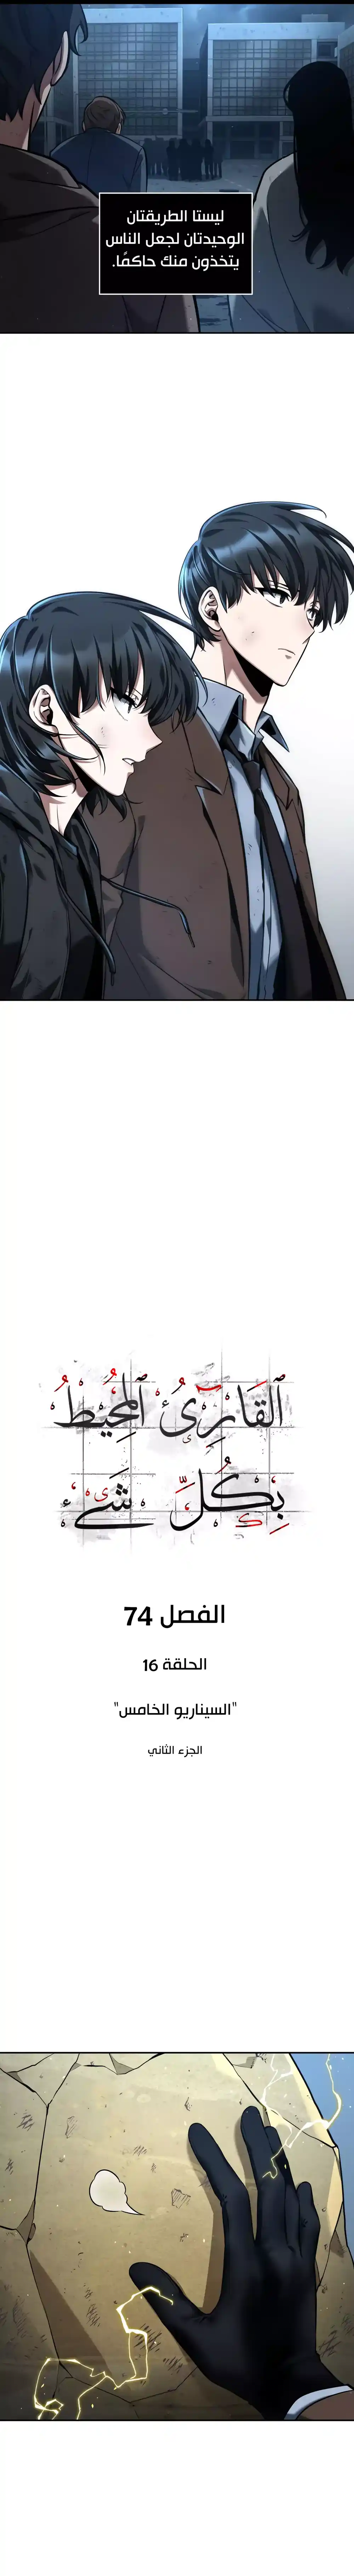 ليستا الطريقتان
الوحيدتان لجعل الناس
يتخذون منك حاكمًا.
ٱلقَارِئُ ٱلمُحِيطُ
بِكُلِّ شَيْءٍ
الفصل 74
الحلقة 16
"السيناريو الخامس"
الجزء الثاني